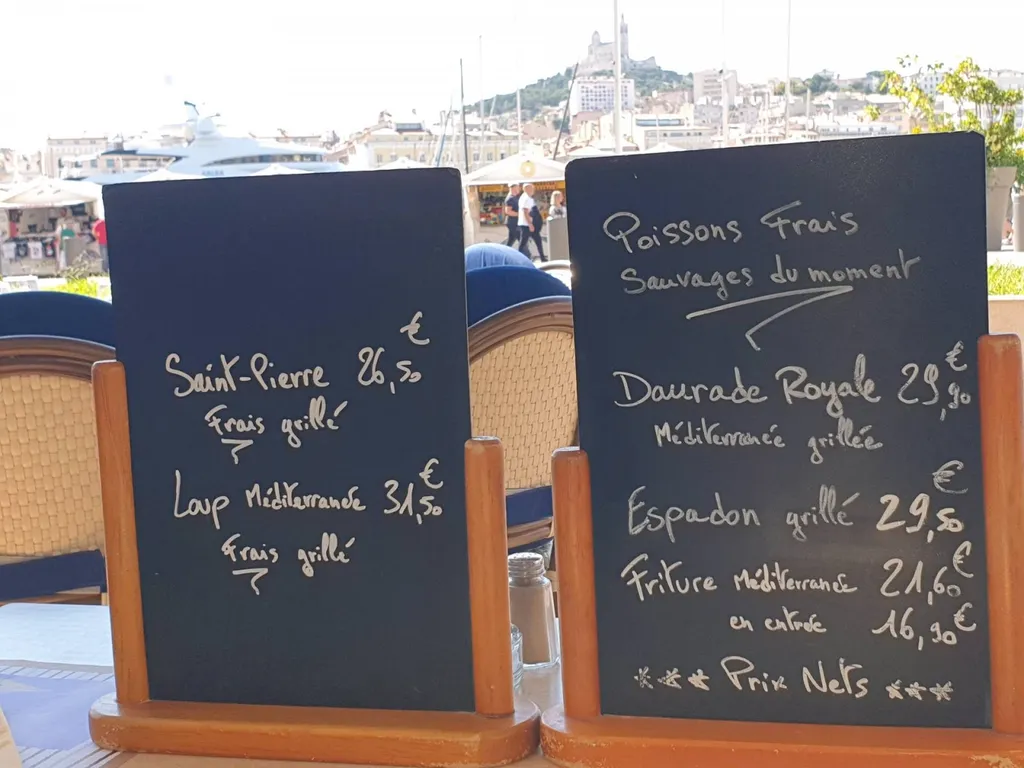 Saint-Pierre 26,50 €
Frais grillé
Loup Méditerranée 31,50 €
Frais grillé
Poissons Frais
Sauvages du moment
Daurade Royale 29,90 €
Méditerranée grillée
Espadon grillé 29,50 €
Friture Méditerranée 21,60 €
en entrée 16,90 €
*** Prix Nets ***